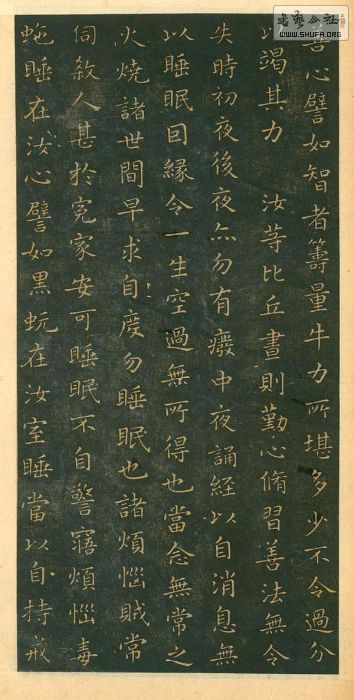 善心譬如智者籌量牛力所堪多少不令過分
以竭其力 汝等比丘晝則勤心脩習善法無令
失時初夜後夜亦勿有癈中夜誦経以自消息無
以睡眠因緣令一生空過無所得也當念無常之
火燒諸世間早求自度勿睡眠也諸煩惱賊常
伺煞人甚於寃家安可睡眠不自警寤煩惱毒
虵睡在汝心譬如黑蚖在汝室睡當以自持戒
書藝公社
WWW.SHUFA.ORG